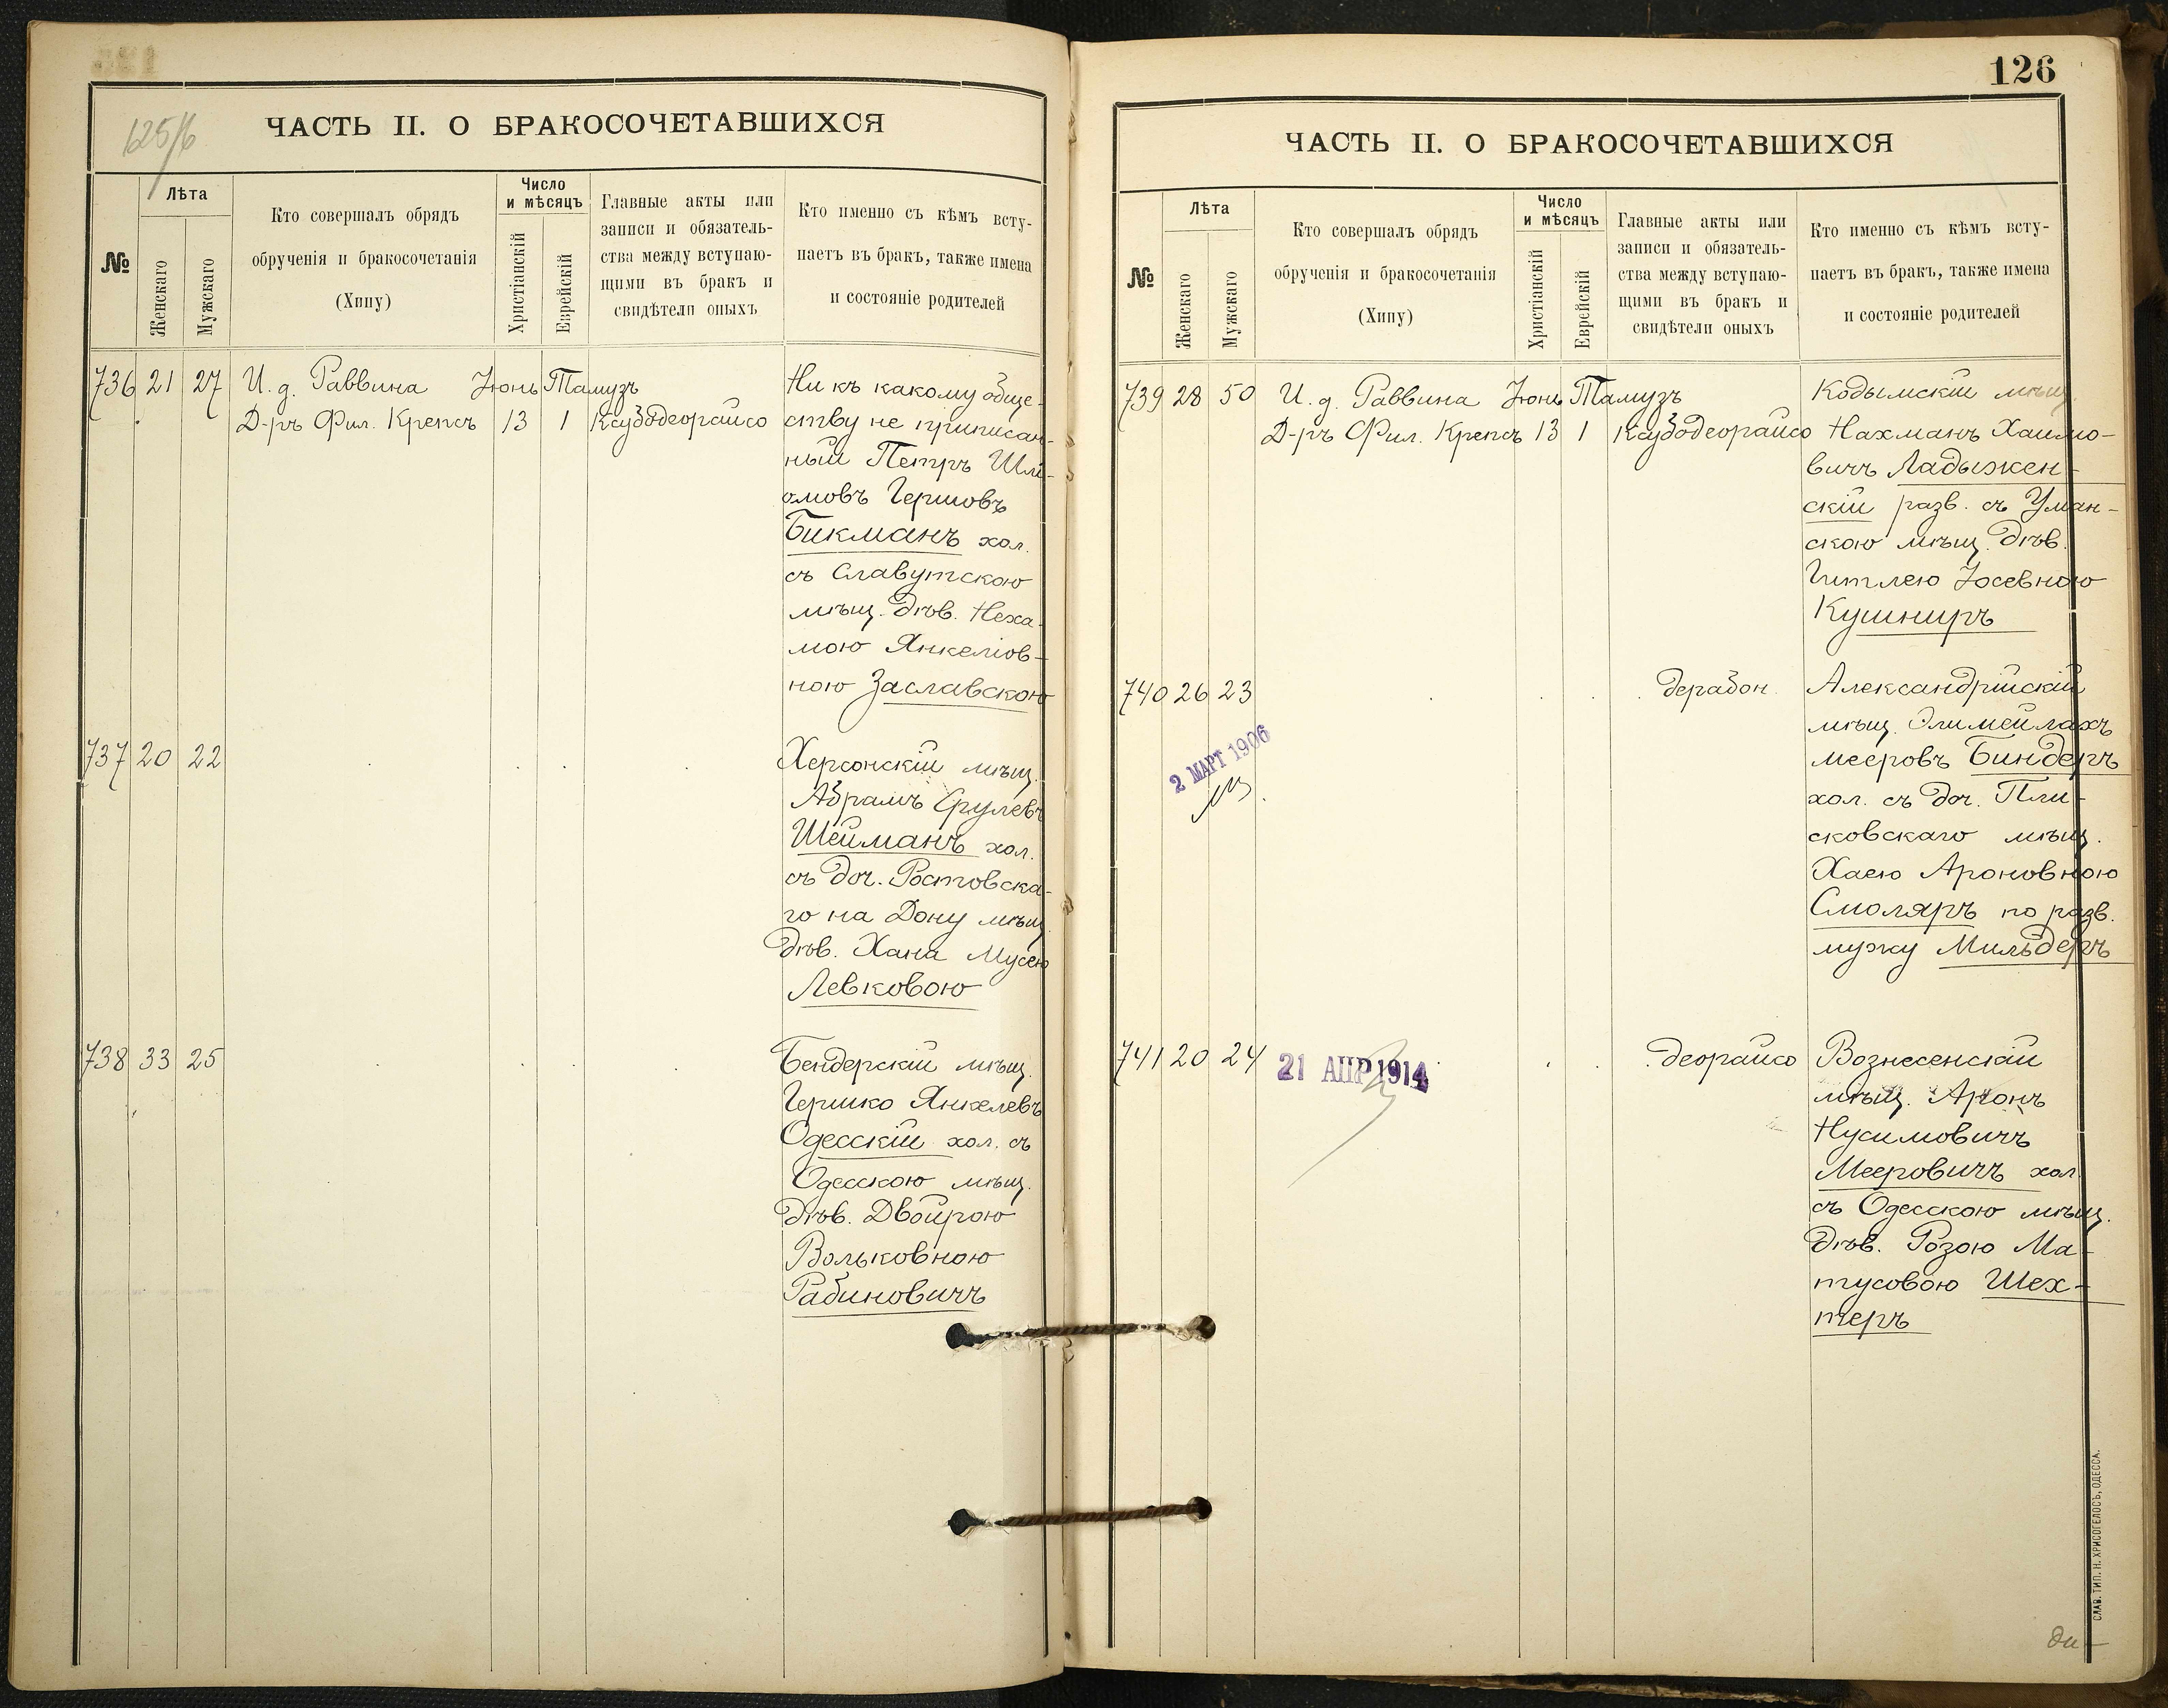 125/6
ЧАСТЬ II. О БРАКОСОЧЕТАВШИХСЯ
№
Лѣта
Женскаго
Мужскаго
Кто совершалъ обрядъ
обрученія и бракосочетанія
(Хипу)
Число
и мѣсяцъ
Христіанскій
Еврейскій
Главные акты или
записи и обязатель-
ства между вступаю-
щими въ бракъ и
свидѣтели оныхъ
Кто именно съ кѣмъ всту-
паетъ въ бракъ, также имена
и состояніе родителей
736 21 27 И. д. Раввина Іюнь Тамузъ Ни къ какому обще-
Д-ръ Фил. Крепсъ 13 1 Ксубодеорайсо ству не приписан-
ный Петръ Шлі-
омовъ Гершовъ
Бикманъ хол.
съ Славутскою
мѣщ. дѣв. Неха-
мою Янкеліов-
ною Заславскою
737 20 22 Херсонскій мѣщ.
Абрамъ Срулевъ
Шейманъ хол.
съ доч. Ростовска-
го на Дону мѣщ.
дѣв. Хана Мусею
Левковою
738 33 25 Бендерскій мѣщ.
Гершко Янкелевъ
Одесскій хол. съ
Одесскою мѣщ.
дѣв. Двойрою
Вольковною
Рабиновичъ
126
ЧАСТЬ II. О БРАКОСОЧЕТАВШИХСЯ
№
Лѣта
Женскаго
Мужскаго
Кто совершалъ обрядъ
обрученія и бракосочетанія
(Хипу)
Число
и мѣсяцъ
Христіанскій
Еврейскій
Главные акты или
записи и обязатель-
ства между вступаю-
щими въ бракъ и
свидѣтели оныхъ
Кто именно съ кѣмъ всту-
паетъ въ бракъ, также имена
и состояніе родителей
739 28 50 И. д. Раввина Іюнь Тамузъ Кодымскій мѣщ.
Д-ръ Фил. Крепсъ 13 1 Ксубодеорайсо Нахманъ Хаимо-
вичъ Ладыжен-
скій разв. съ Уман-
скою мѣщ. дѣв.
Гитлею Іосевною
Кушниръ
740 26 23 дерабон. Александрійскій
мѣщ. Элимейлахъ
Мееровъ Биндеръ
хол. съ доч. Пли-
сковскаго мѣщ.
Хаею Ароновною
Смоляръ по разв.
мужу Мильдеръ
2 МАРТ 1906
741 20 24 21 АПР 1914 деорайсо Вознесенскій
мѣщ. Аронъ
Нусимовичъ
Мееровичъ хол.
съ Одесскою мѣщ.
дѣв. Розою Ма-
тусовою Шех-
теръ
СЛАВ. ТИП. Н. ХРИСОГЕЛОСЪ, ОДЕССА.